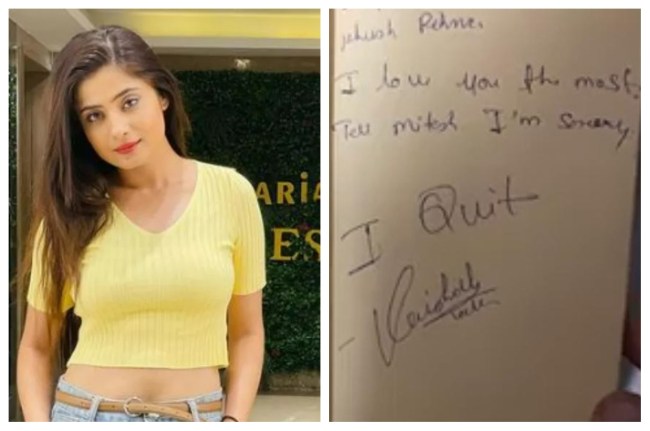 ARIA
ES
Rehne.
I love you the most.
Tell Mitesh I'm sorry.
I Quit